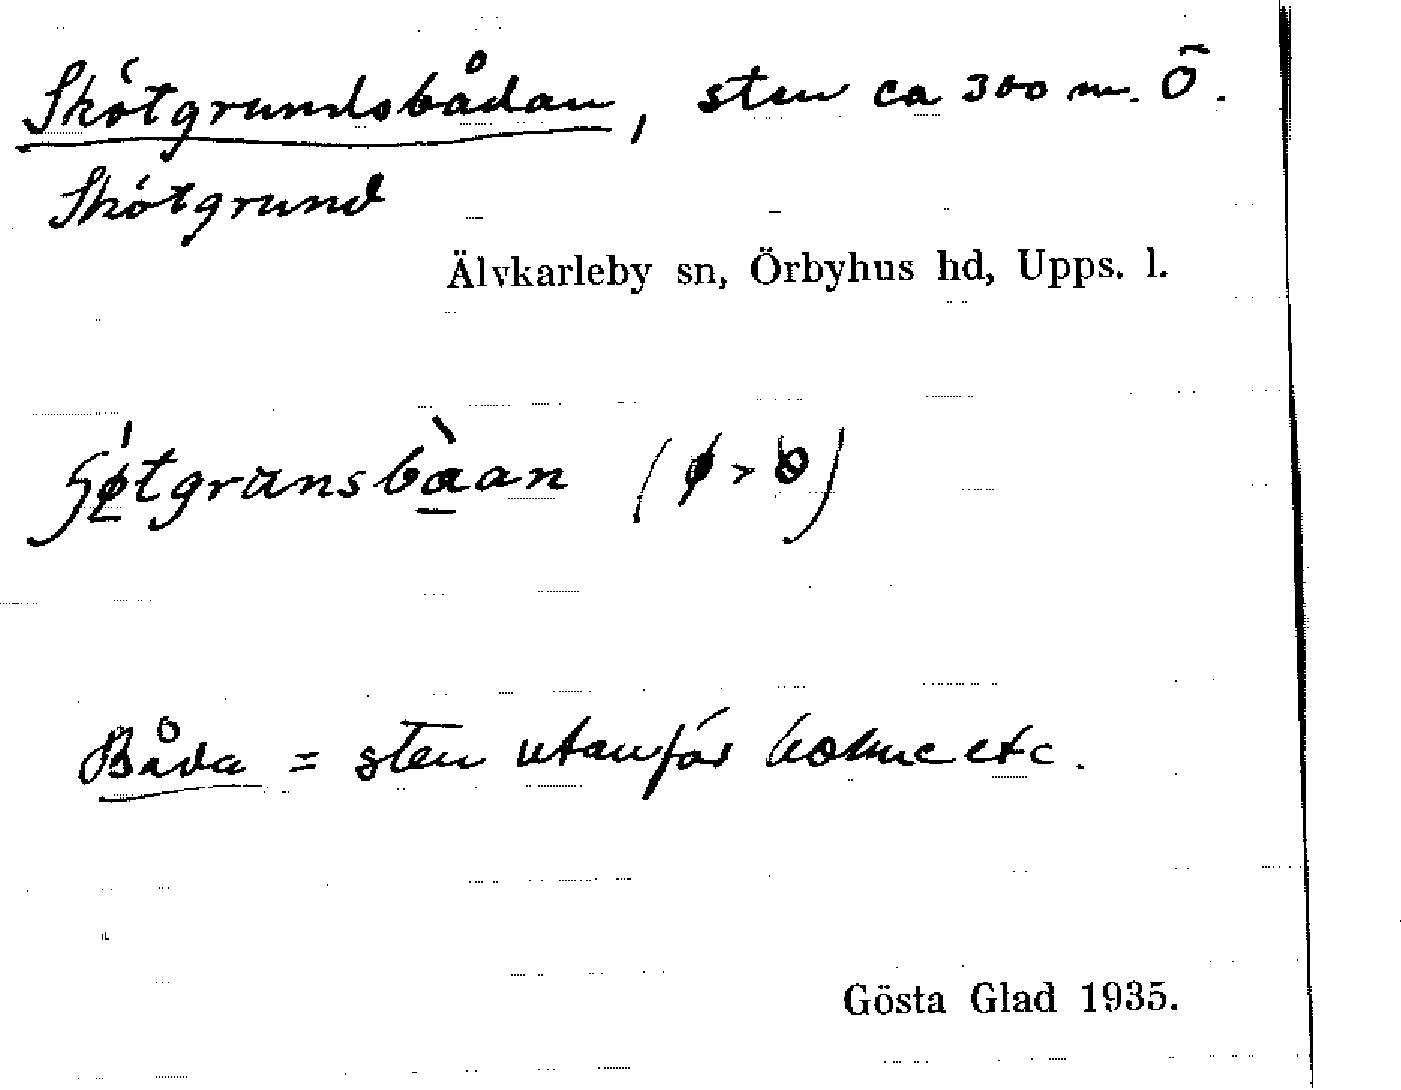 Skötgrundsbådan, sten ca 300 m. Ö.
Skötgrund
Älvkarleby sn, Örbyhus hd, Upps. l.
(ø > ö)
Båda = sten utanför holme etc.
Gösta Glad 1935.